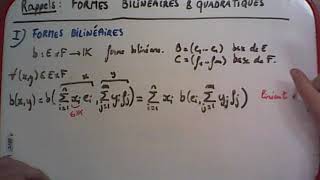 Rappels : FORMES BILINÉAIRES & QUADRATIQUES
I) FORMES BILINÉAIRES
b : E×F → K forme bilinéaire. B = (e₁ … eₙ) base de E.
C = (f₁ … fₘ) base de F.
∀ (x,y) ∈ E×F x y
b(x,y) = b( ∑ᵢ₌₁ⁿ xᵢ eᵢ , ∑ⱼ₌₁ᵐ yⱼ fⱼ ) = ∑ᵢ₌₁ⁿ xᵢ b(eᵢ, ∑ⱼ₌₁ᵐ yⱼ fⱼ)
∈ K